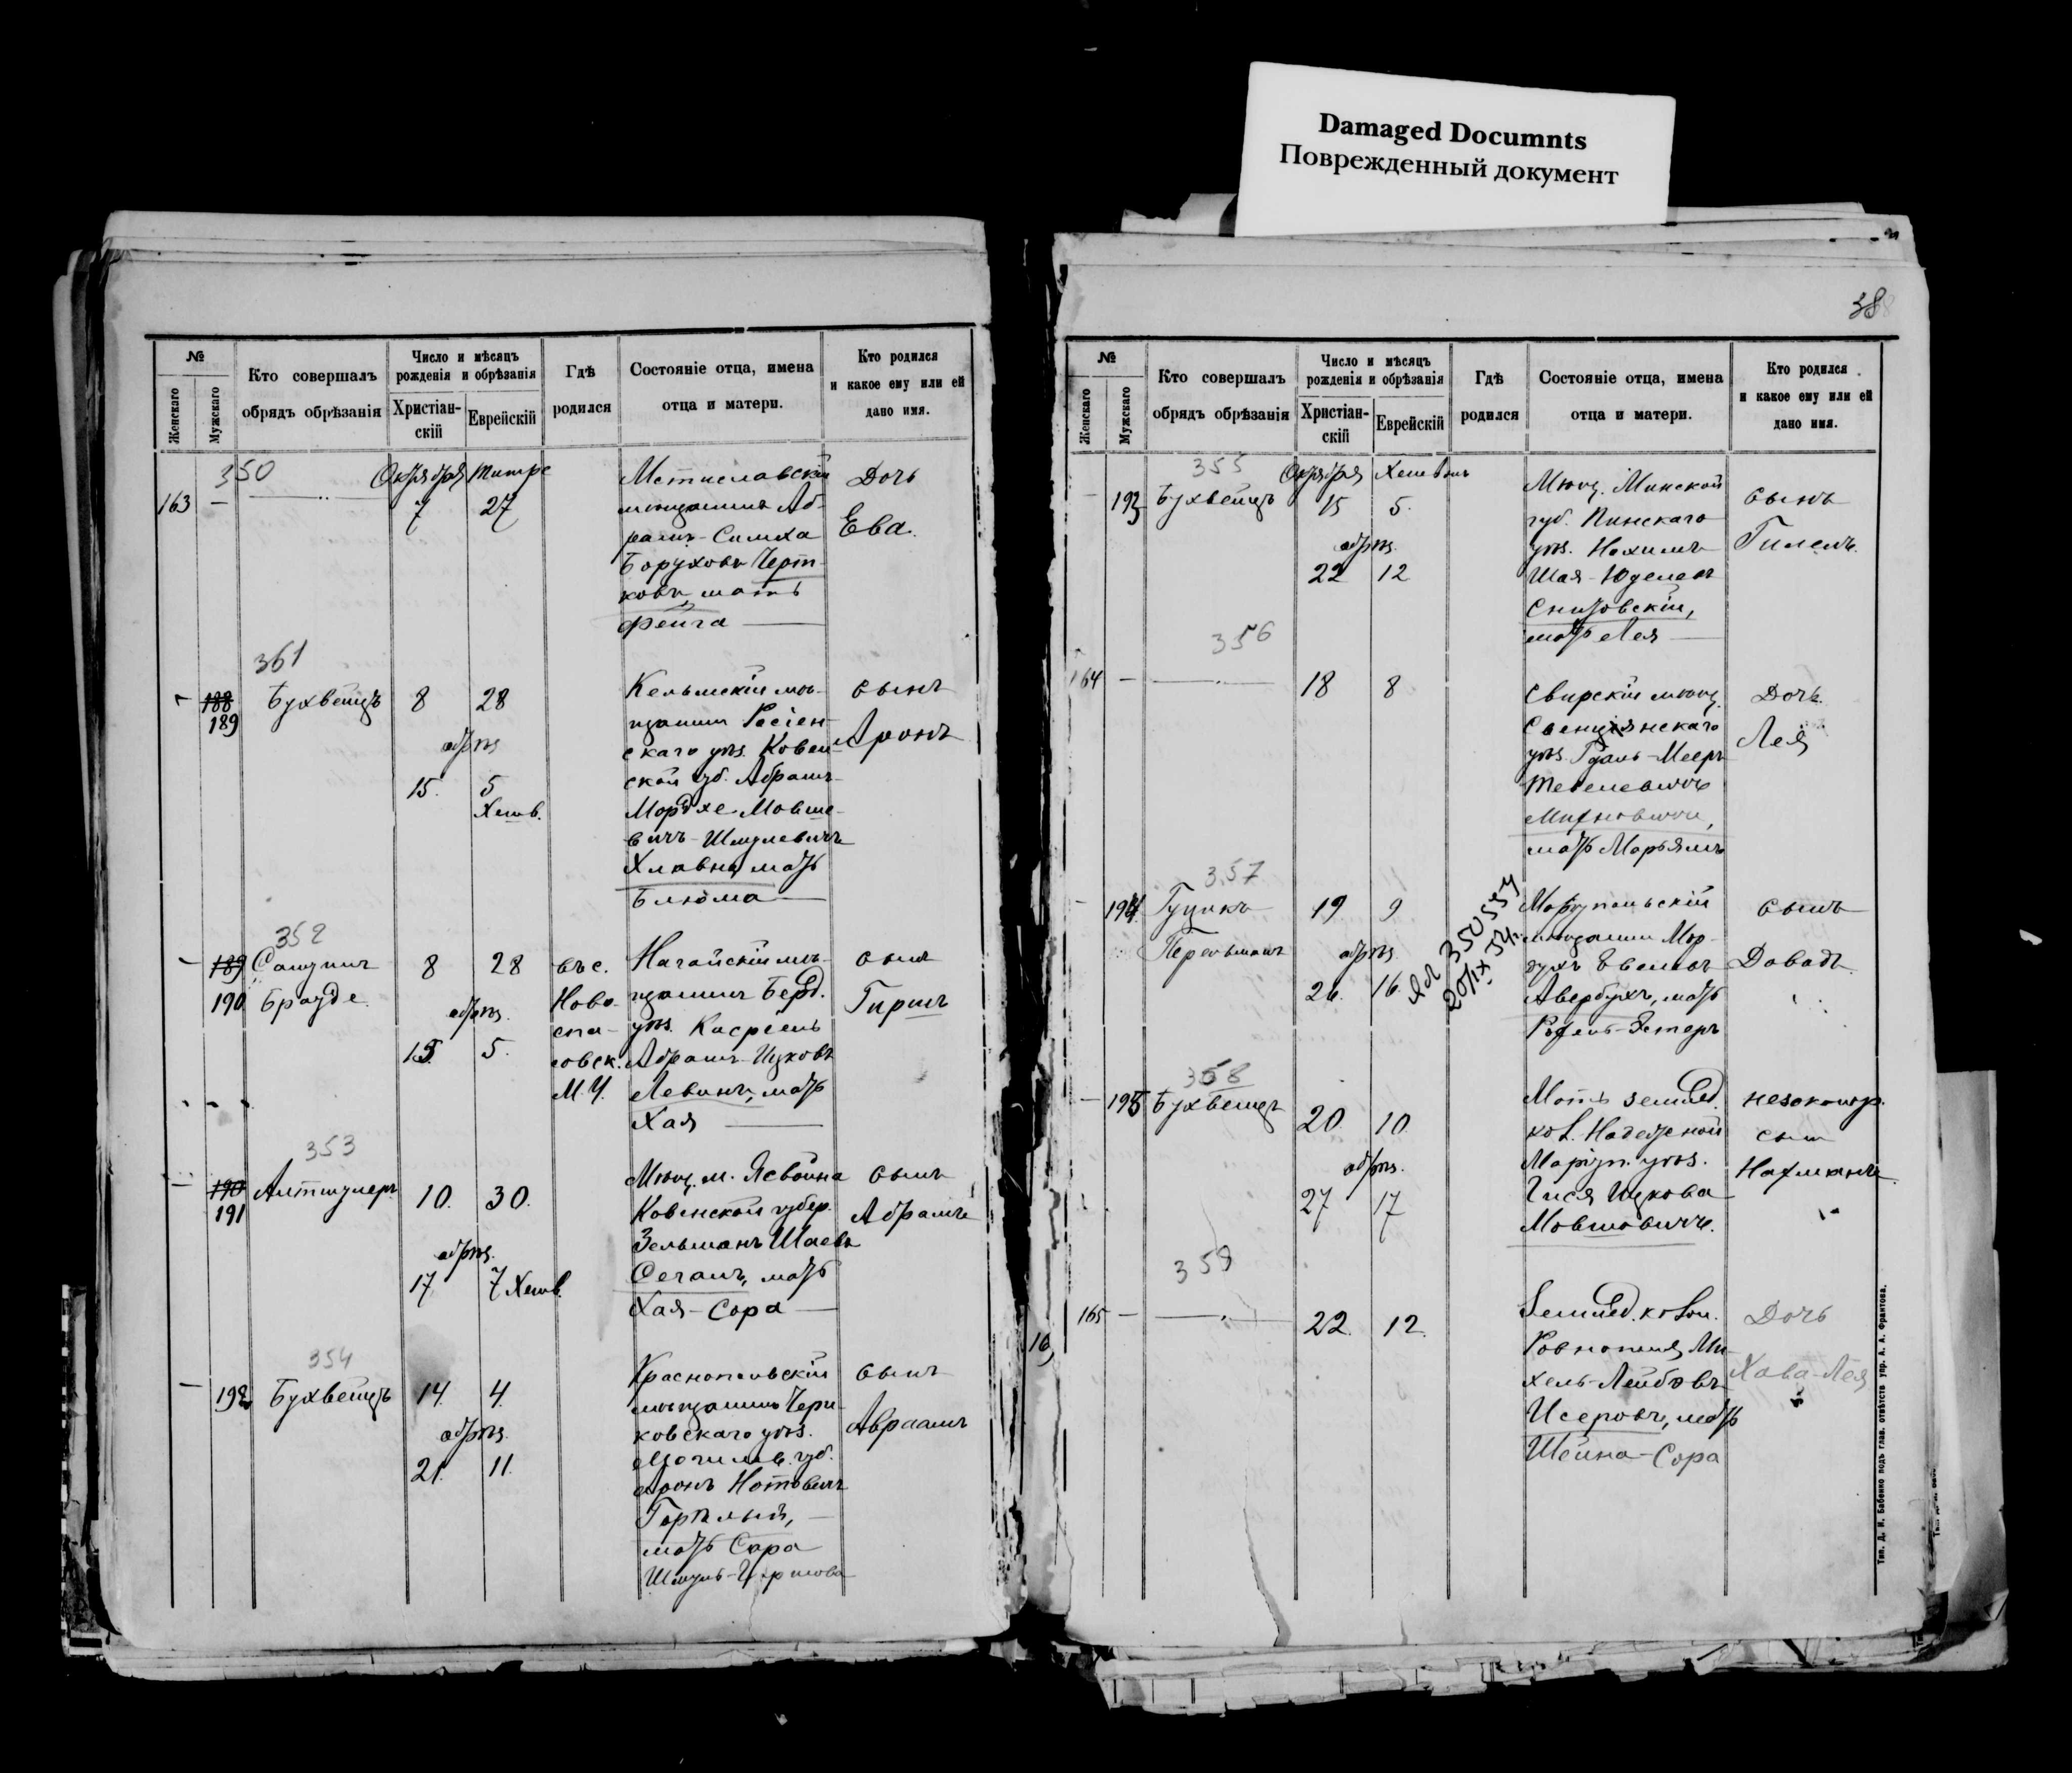 Damaged Documnts
Поврежденный документ
№
Женскаго
Мужскаго
Кто совершалъ
обрядъ обрѣзанія
Число и мѣсяцъ
рожденія и обрѣзанія
Христіан-
скій
Еврейскій
Гдѣ
родился
Состояніе отца, имена
отца и матери.
Кто родился
и какое ему или ей
дано имя.
350
163 —
Октября Тишре
7 27
Мстиславскій
мѣщанинъ Аб-
рамъ-Симха
Боруховъ Черт-
ковъ, мать
Фейга
Дочь
Ева.
361
— 188
189
Бухвейцъ
8 28
обрѣз
15. 5
Хешв.
Кельмскій мѣ-
щанин Росіен-
скаго уѣз. Ковен-
ской губ. Абрамъ-
Мордхе Мовше-
вичъ-Шмулевичъ
Хлавна, мать
Блюма
сынъ
Аронъ
352
— 189
190
Брауде.
8 28
обрѣз.
15. 5.
въ с.
Ново-
спа-
совск.
М. У.
Ногайскій мѣ-
щанинъ Берд.
уѣз. Касріель
Абрамъ-Ицковъ
Левинъ, мать
Хая
сынъ
Гиршъ
353
— 190
191
Альтшулеръ
10. 30.
обрѣз.
17 7 Хешв.
Мѣщ. м. Ясвойна
Ковенской губер.
Зельманъ Шаевъ
Сегалъ, мать
Хая-Сора
сынъ
Абрамъ
354
— 192
Бухвейцъ
14. 4.
обрѣз.
21. 11.
Краснопольскій
мѣщанинъ Чери-
ковскаго уѣз.
Могилев. губ.
Аронъ Нотовичъ
Горѣлый,
мать Сара
сынъ
Авраамъ
38
№
Женскаго
Мужскаго
Кто совершалъ
обрядъ обрѣзанія
Число и мѣсяцъ
рожденія и обрѣзанія
Христіан-
скій
Еврейскій
Гдѣ
родился
Состояніе отца, имена
отца и матери.
Кто родился
и какое ему или ей
дано имя.
355
— 193
Бухвейцъ
Октября Хешвонъ
15 5.
обрѣз.
22 12
Мѣщ. Минской
губ. Пинскаго
уѣз. Нохимъ
Шая-Юделевъ
Снитовскій,
мать Лея
сынъ
Гилель.
356
164 —
18 8
Свирскій мѣщ.
Свенцянскаго
уѣз. Гдаль-Мееръ
Тевелевичъ
мать Марьямъ
Дочь.
Лея
357
— 194
Гуцикъ
Перельманъ
19 9
обрѣз.
26. 16.
350554
20/IX 34.
Маріупольскій
мѣщанин Мор-
Авербухъ, мать
Рохель-Эстеръ
сынъ
Давадъ.
358
— 195
Бухвейцъ
20. 10.
обрѣз.
27 17
Мать землед.
кол. Надежной
Маріуп. уѣз.
Гися Ицкова
Мовшовичъ.
незаконор.
сын
Нахманъ.
359
165 —
22. 12.
Землед. колон.
Ровнополя Ми-
хель-Лейбовъ
Исеровъ, мать
Шейна-Сора
Дочь
Хава-Лея
Тип. Д. И. Бабенко подъ глав. отвѣтств упр. А. А. Франтова.